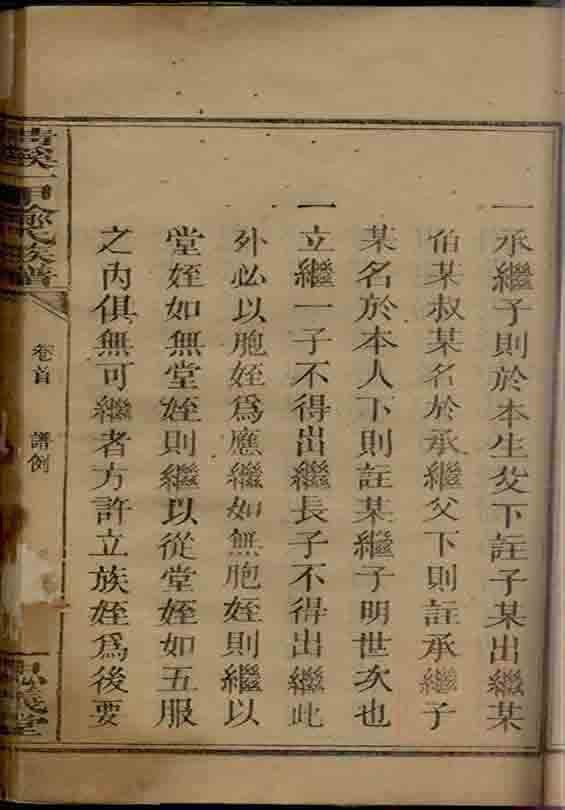 一承繼子則於本生父下註子某出繼某
伯某叔某名於承繼父下則註承繼子
某名於本人下則註某繼子明世次也
一立繼一子不得出繼長子不得出繼此
外必以胞姪為應繼如無胞姪則繼以
堂姪如無堂姪則繼以從堂姪如五服
之內俱無可繼者方許立族姪為後要
氏族譜
卷首 譜例
義堂